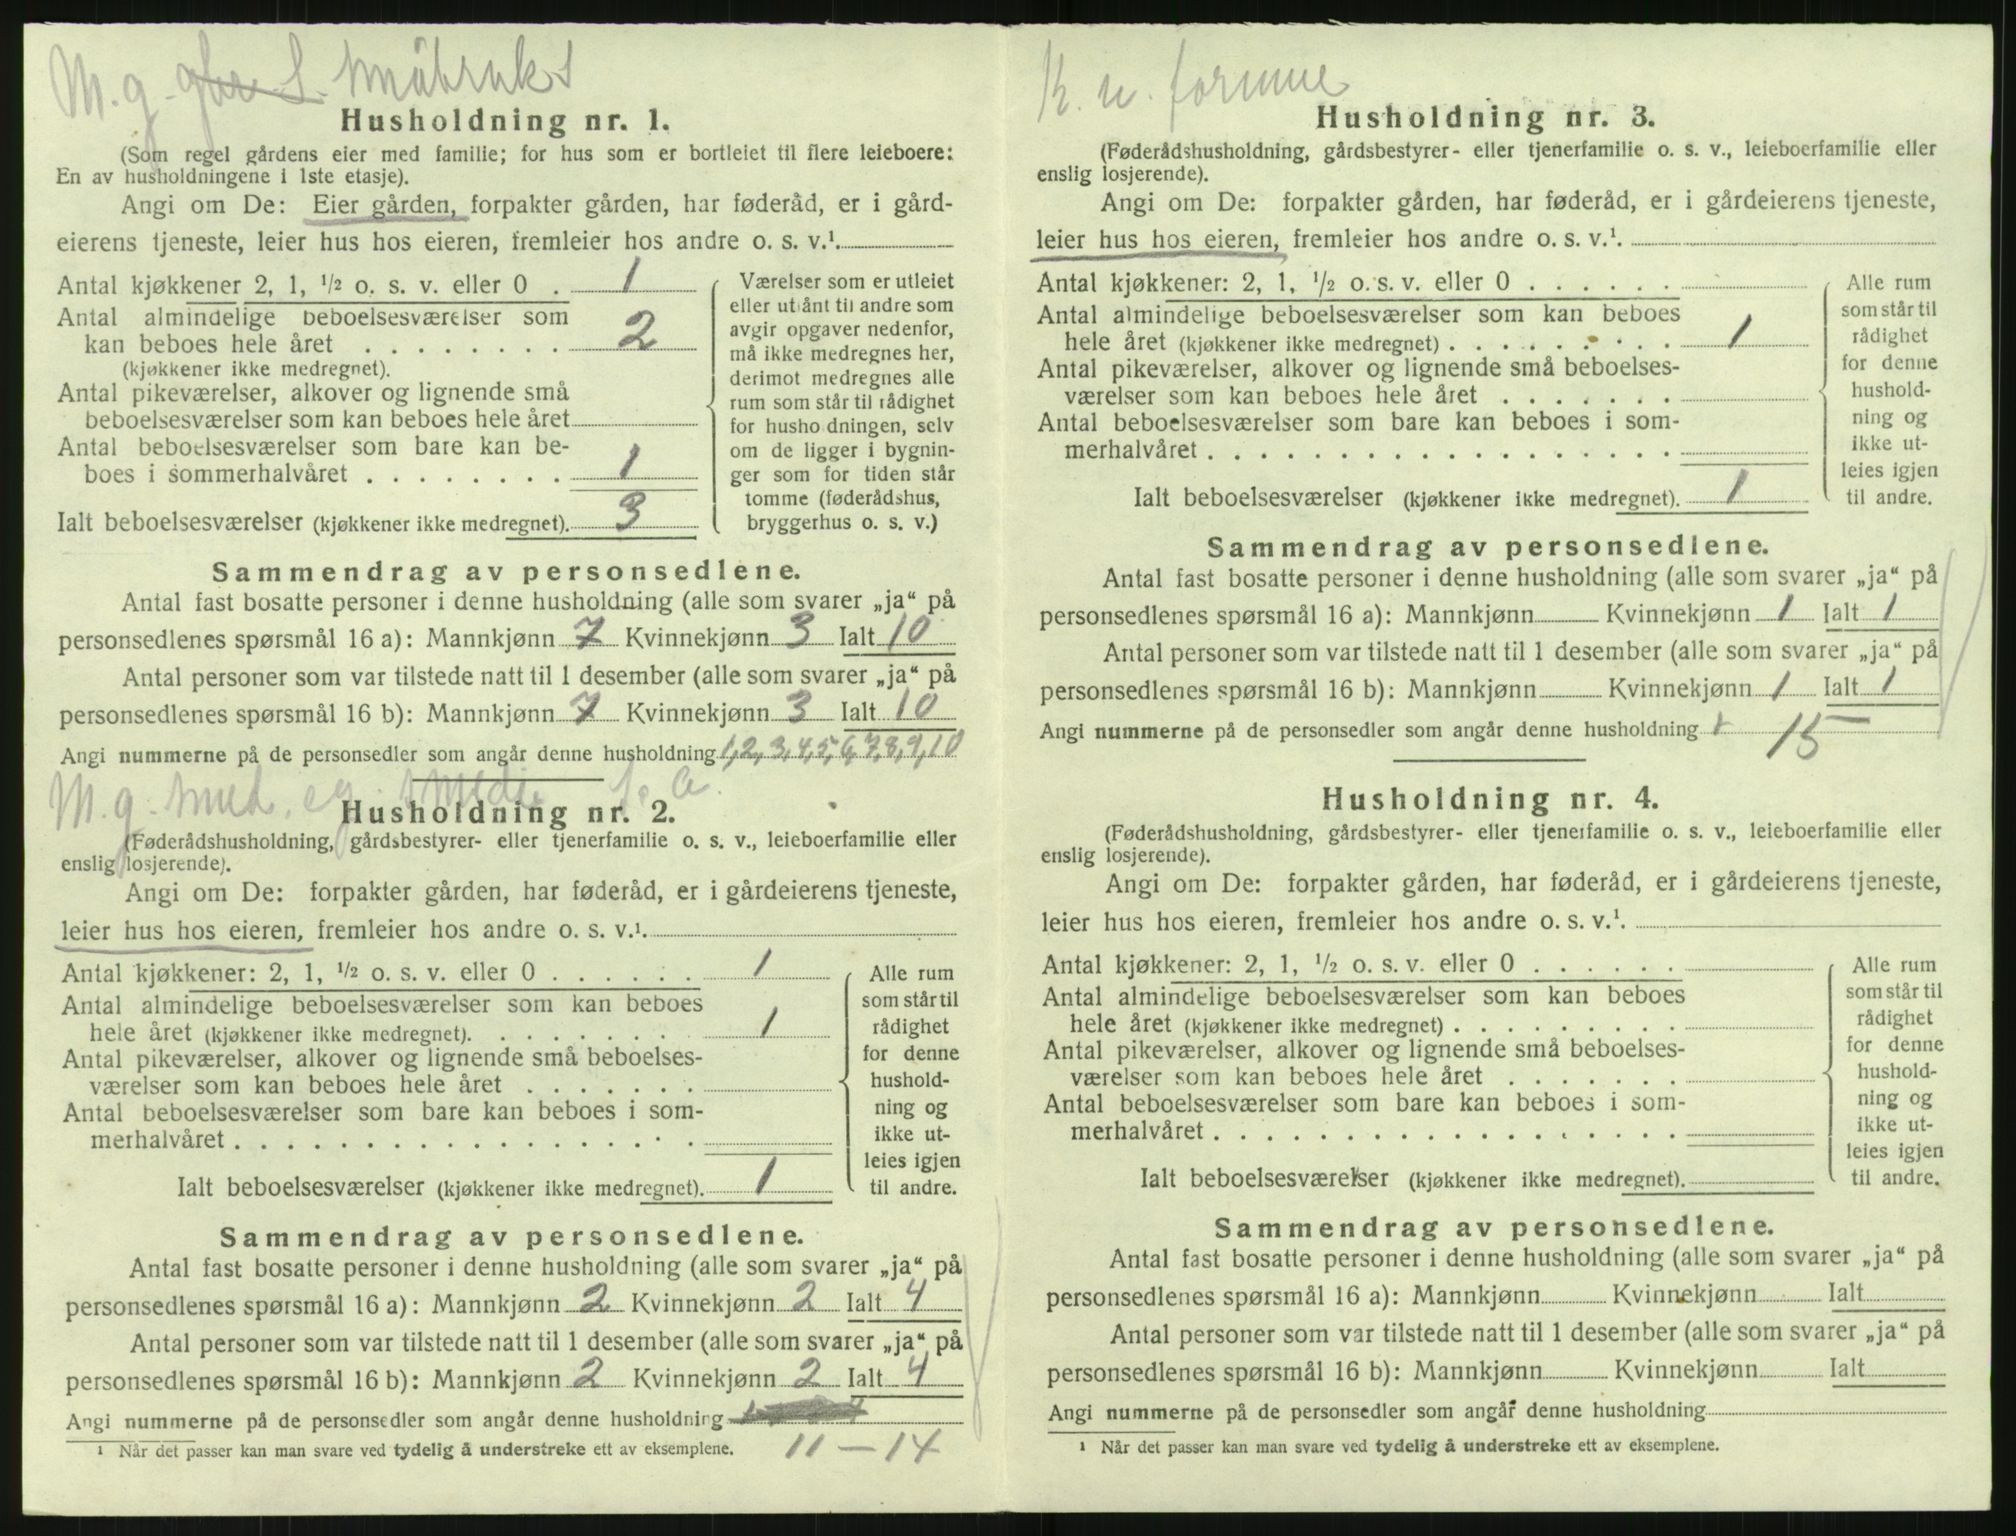 M. g. gbr. S. småbruks
Husholdning nr. 1.
(Som regel gårdens eier med familie; for hus som er bortleiet til flere leieboere:
En av husholdningene i 1ste etasje).
Angi om De: Eier gården, forpakter gården, har føderåd, er i gård-
eierens tjeneste, leier hus hos eieren, fremleier hos andre o. s. v.¹.
Antal kjøkkener 2, 1, ½ o. s. v. eller 0 . 1
Antal almindelige beboelsesværelser som
kan beboes hele året . . . . . . . . 2
(kjøkkener ikke medregnet).
Antal pikeværelser, alkover og lignende små
beboelsesværelser som kan beboes hele året
Antal beboelsesværelser som bare kan be-
boes i sommerhalvåret . . . . . . . . 1
Ialt beboelsesværelser (kjøkkener ikke medregnet). 3
Værelser som er utleiet
eller utlånt til andre som
avgir opgaver nedenfor,
må ikke medregnes her,
derimot medregnes alle
rum som står til rådighet
for husho dningen, selv
om de ligger i bygnin-
ger som for tiden står
tomme (føderådshus,
bryggerhus o. s. v.)
Sammendrag av personsedlene.
Antal fast bosatte personer i denne husholdning (alle som svarer „ja“ på
personsedlenes spørsmål 16 a): Mannkjønn 7 Kvinnekjønn 3 Ialt 10
Antal personer som var tilstede natt til 1 desember (alle som svarer „ja“ på
personsedlenes spørsmål 16 b): Mannkjønn 7 Kvinnekjønn 3 Ialt 10
Angi nummerne på de personsedler som angår denne husholdning 1,2,3,4,5,6,7,8,9,10
M. g.
Husholdning nr. 2.
(Føderådshusholdning, gårdsbestyrer- eller tjenerfamilie o. s. v., leieboerfamilie eller
enslig losjerende).
Angi om De: forpakter gården, har føderåd, er i gårdeierens tjeneste,
leier hus hos eieren, fremleier hos andre o. s. v.¹.
Antal kjøkkener: 2, 1, ½ o. s. v. eller 0 . . . . . . 1
Antal almindelige beboelsesværelser som kan beboes
hele året (kjøkkener ikke medregnet). . . . . . . . 1
Antal pikeværelser, alkover og lignende små beboelses-
værelser som kan beboes hele året . . . . . . .
Antal beboelsesværelser som bare kan beboes i som-
merhalvåret . . . . . . . . . . . . . . . . . .
Ialt beboelsesværelser (kjøkkener ikke medregnet). 1
Alle rum
som står til
rådighet
for denne
hushold-
ning og
ikke ut-
leies igjen
til andre.
Sammendrag av personsedlene.
Antal fast bosatte personer i denne husholdning (alle som svarer „ja“ på
personsedlenes spørsmål 16 a): Mannkjønn 2 Kvinnekjønn 2 Ialt 4
Antal personer som var tilstede natt til 1 desember (alle som svarer „ja“ på
personsedlenes spørsmål 16 b): Mannkjønn 2 Kvinnekjønn 2 Ialt 4
Angi nummerne på de personsedler som angår denne husholdning
¹ Når det passer kan man svare ved tydelig å understreke ett av eksemplene. 11 – 14
K. u. formue
Husholdning nr. 3.
(Føderådshusholdning, gårdsbestyrer- eller tjenerfamilie o. s. v., leieboerfamilie eller
enslig losjerende).
Angi om De: forpakter gården, har føderåd, er i gårdeierens tjeneste,
leier hus hos eieren, fremleier hos andre o. s. v.¹.
Antal kjøkkener: 2, 1, ½ o. s. v. eller 0 . . . . . .
Antal almindelige beboelsesværelser som kan beboes
hele året (kjøkkener ikke medregnet) . . . . . . . . . 1
Antal pikeværelser, alkover og lignende små beboelses-
værelser som kan beboes hele året . . . . . . .
Antal beboelsesværelser som bare kan beboes i som-
merhalvåret . . . . . . . . . . . . . . . . . .
Ialt beboelsesværelser (kjøkkener ikke medregnet). 1
Alle rum
som står til
rådighet
for denne
hushold-
ning og
ikke ut-
leies igjen
til andre.
Sammendrag av personsedlene.
Antal fast bosatte personer i denne husholdning (alle som svarer „ja“ på
personsedlenes spørsmål 16 a): Mannkjønn Kvinnekjønn 1 Ialt 1
Antal personer som var tilstede natt til 1 desember (alle som svarer „ja“ på
personsedlenes spørsmål 16 b): Mannkjønn Kvinnekjønn 1 Ialt 1
Angi nummerne på de personsedler som angår denne husholdning 15
Husholdning nr. 4.
(Føderådshusholdning, gårdsbestyrer- eller tjenerfamilie o. s. v., leieboerfamilie eller
enslig losjerende).
Angi om De: forpakter gården, har føderåd, er i gårdeierens tjeneste,
leier hus hos eieren, fremleier hos andre o. s. v.¹.
Antal kjøkkener: 2, 1, ½ o. s. v. eller 0 . . . . . .
Antal almindelige beboelsesværelser som kan beboes
hele året (kjøkkener ikke medregnet) . . . . . . . . .
Antal pikeværelser, alkover og lignende små beboelses-
værelser som kan beboes hele året . . . . . . .
Antal beboelsesværelser som bare kan beboes i som-
merhalvåret . . . . . . . . . . . . . . . . . .
Ialt beboelsesværelser (kjøkkener ikke medregnet).
Alle rum
som står til
rådighet
for denne
hushold-
ning og
ikke ut-
leies igjen
til andre.
Sammendrag av personsedlene.
Antal fast bosatte personer i denne husholdning (alle som svarer „ja“ på
personsedlenes spørsmål 16 a): Mannkjønn Kvinnekjønn Ialt
Antal personer som var tilstede natt til 1 desember (alle som svarer „ja“ på
personsedlenes spørsmål 16 b): Mannkjønn Kvinnekjønn Ialt
Angi nummerne på de personsedler som angår denne husholdning
¹ Når det passer kan man svare ved tydelig å understreke ett av eksemplene.